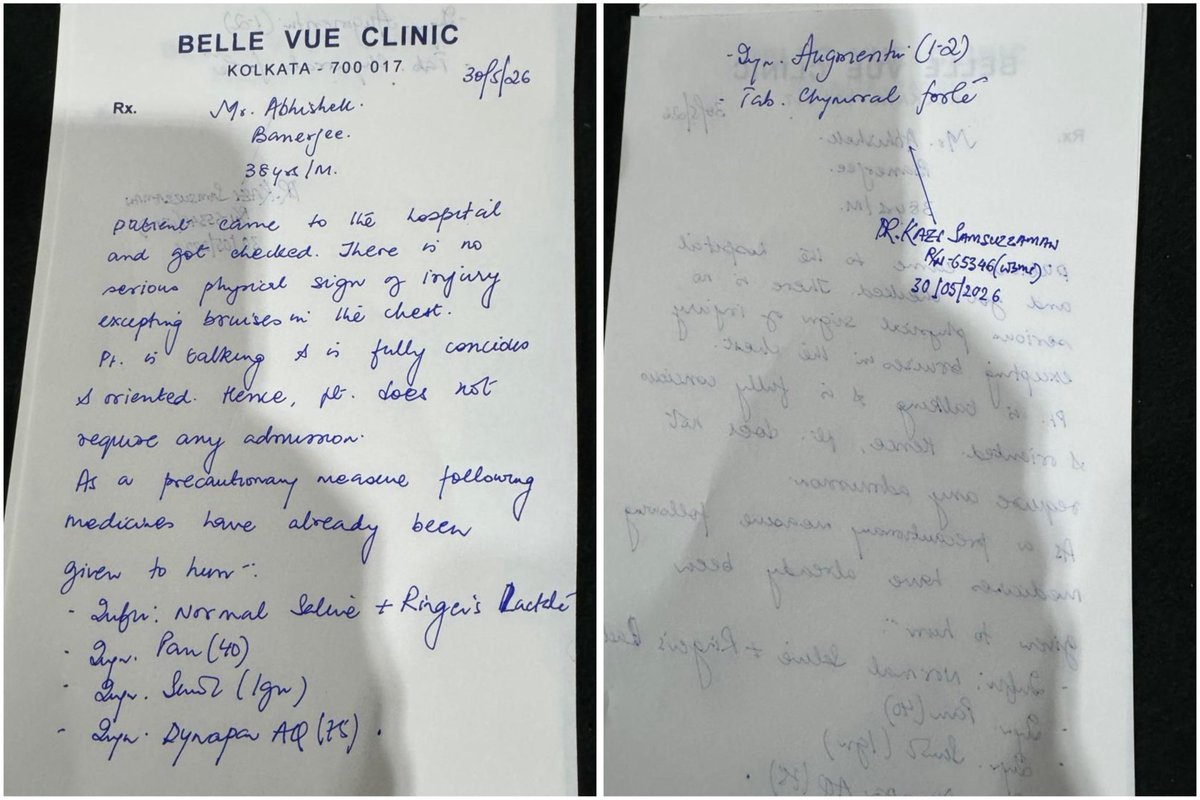 BELLE VUE CLINIC
KOLKATA - 700 017
30/5/26
Rx.
Mr. Abhishek
Banerjee.
38yrs/M.
patient came to the hospital
and got checked. There is no
serious physical sign of injury
excepting bruises in the chest.
Pt. is talking & is fully concious
& oriented. Hence, pt. does not
require any admission.
As a precautionary measure following
medicines have already been
given to him -:
- Infn: Normal Saline + Ringer's Lactate
- Inj. Pan (40)
- Inj. (1gm)
- Inj. Dynapar AQ (75).
- Inj. Augmentin (1-2)
- Tab. Chymoral forte
DR. KAZI SAMSUZZAMAN
R/N-65346 (WBMC)
30/05/2026